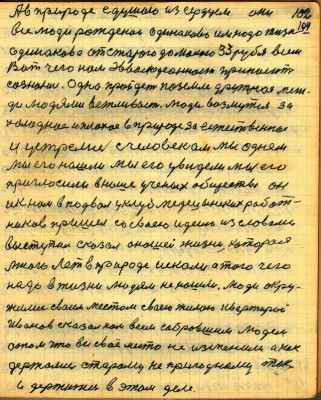 А в природе с душою из сердцем они 102
все люди рождены одинаково им надо жизнь 104
одинакова от старого до малого 33 рубля всем
Вот чего нам Эволюционность принесет
сознани. Одно пройдет по земле дружная меж-
ду людями вспыхивает. Люди возмутся за
холодное и плохое в природе за естественное
и устремы с человеком мы одним
мы его нашли мы его увидели мы его
пригласили в наше ученых общество он
и к нам в подвал у клуб медецынских работ-
ников пришел со своею идеею из словами
выступал сказал о нашей жизни, которая
много лет в природе искали а того чего
надо в жизни людям не нашли. Люди окру-
жили своим местом своею жилою квартирой
Иванов сказал нам всем собравшим людям
о том что вы своё место не изменили а их
держали старому, не пригодному так
и держитесь в этом деле.